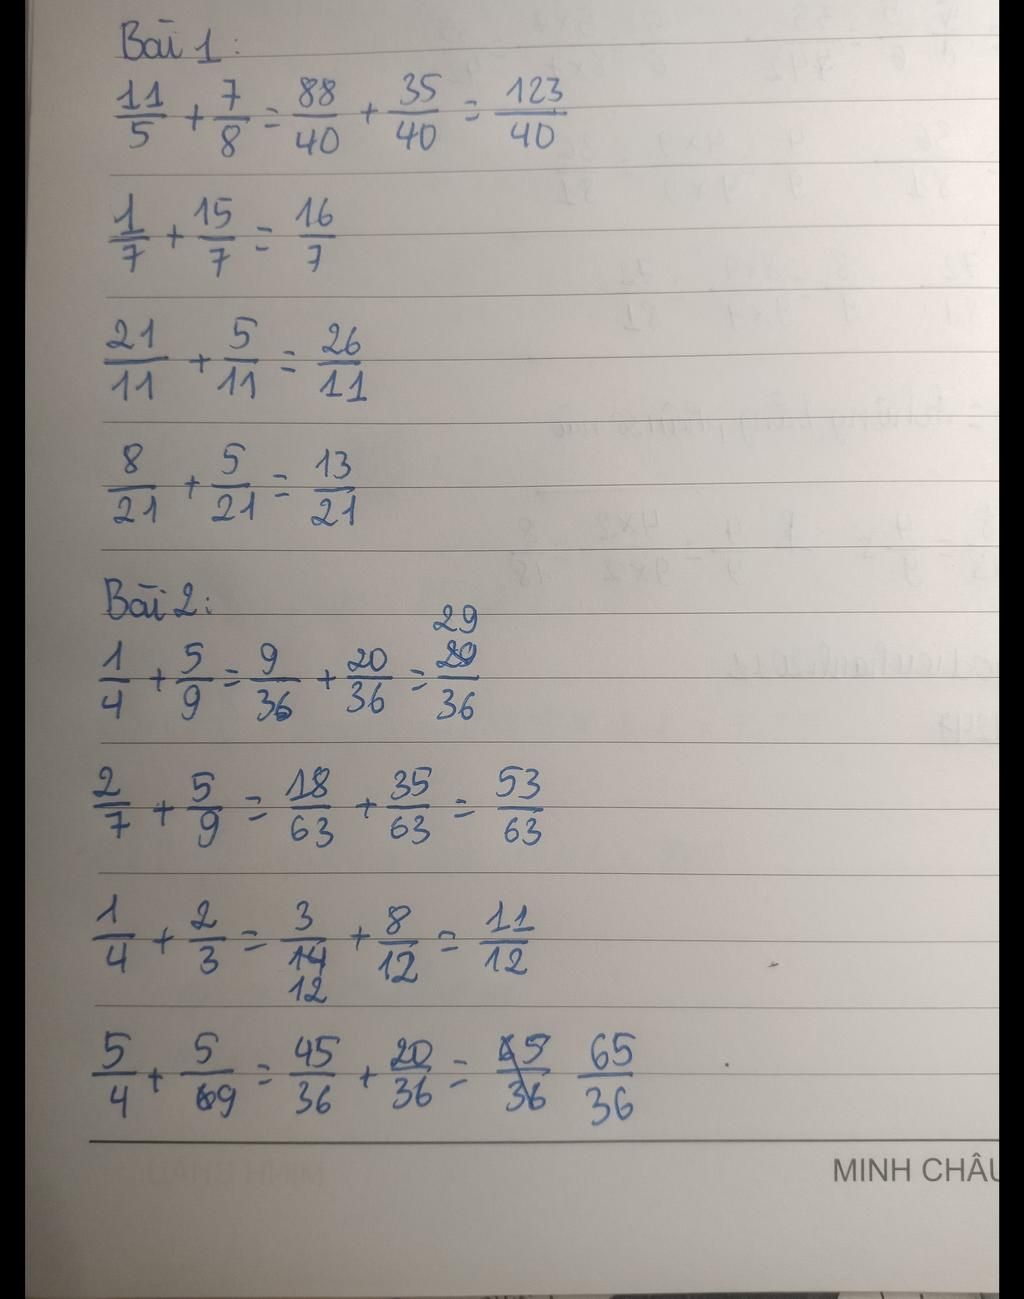 Bài 1:
11/5 + 7/8 = 88/40 + 35/40 = 123/40
1/7 + 15/7 = 16/7
21/11 + 5/11 = 26/11
8/21 + 5/21 = 13/21
Bài 2:
1/4 + 5/9 = 9/36 + 20/36 = 29/36
2/7 + 5/9 = 18/63 + 35/63 = 53/63
1/4 + 2/3 = 3/12 + 8/12 = 11/12
5/4 + 5/9 = 45/36 + 20/36 = 65/36
MINH CHÂU